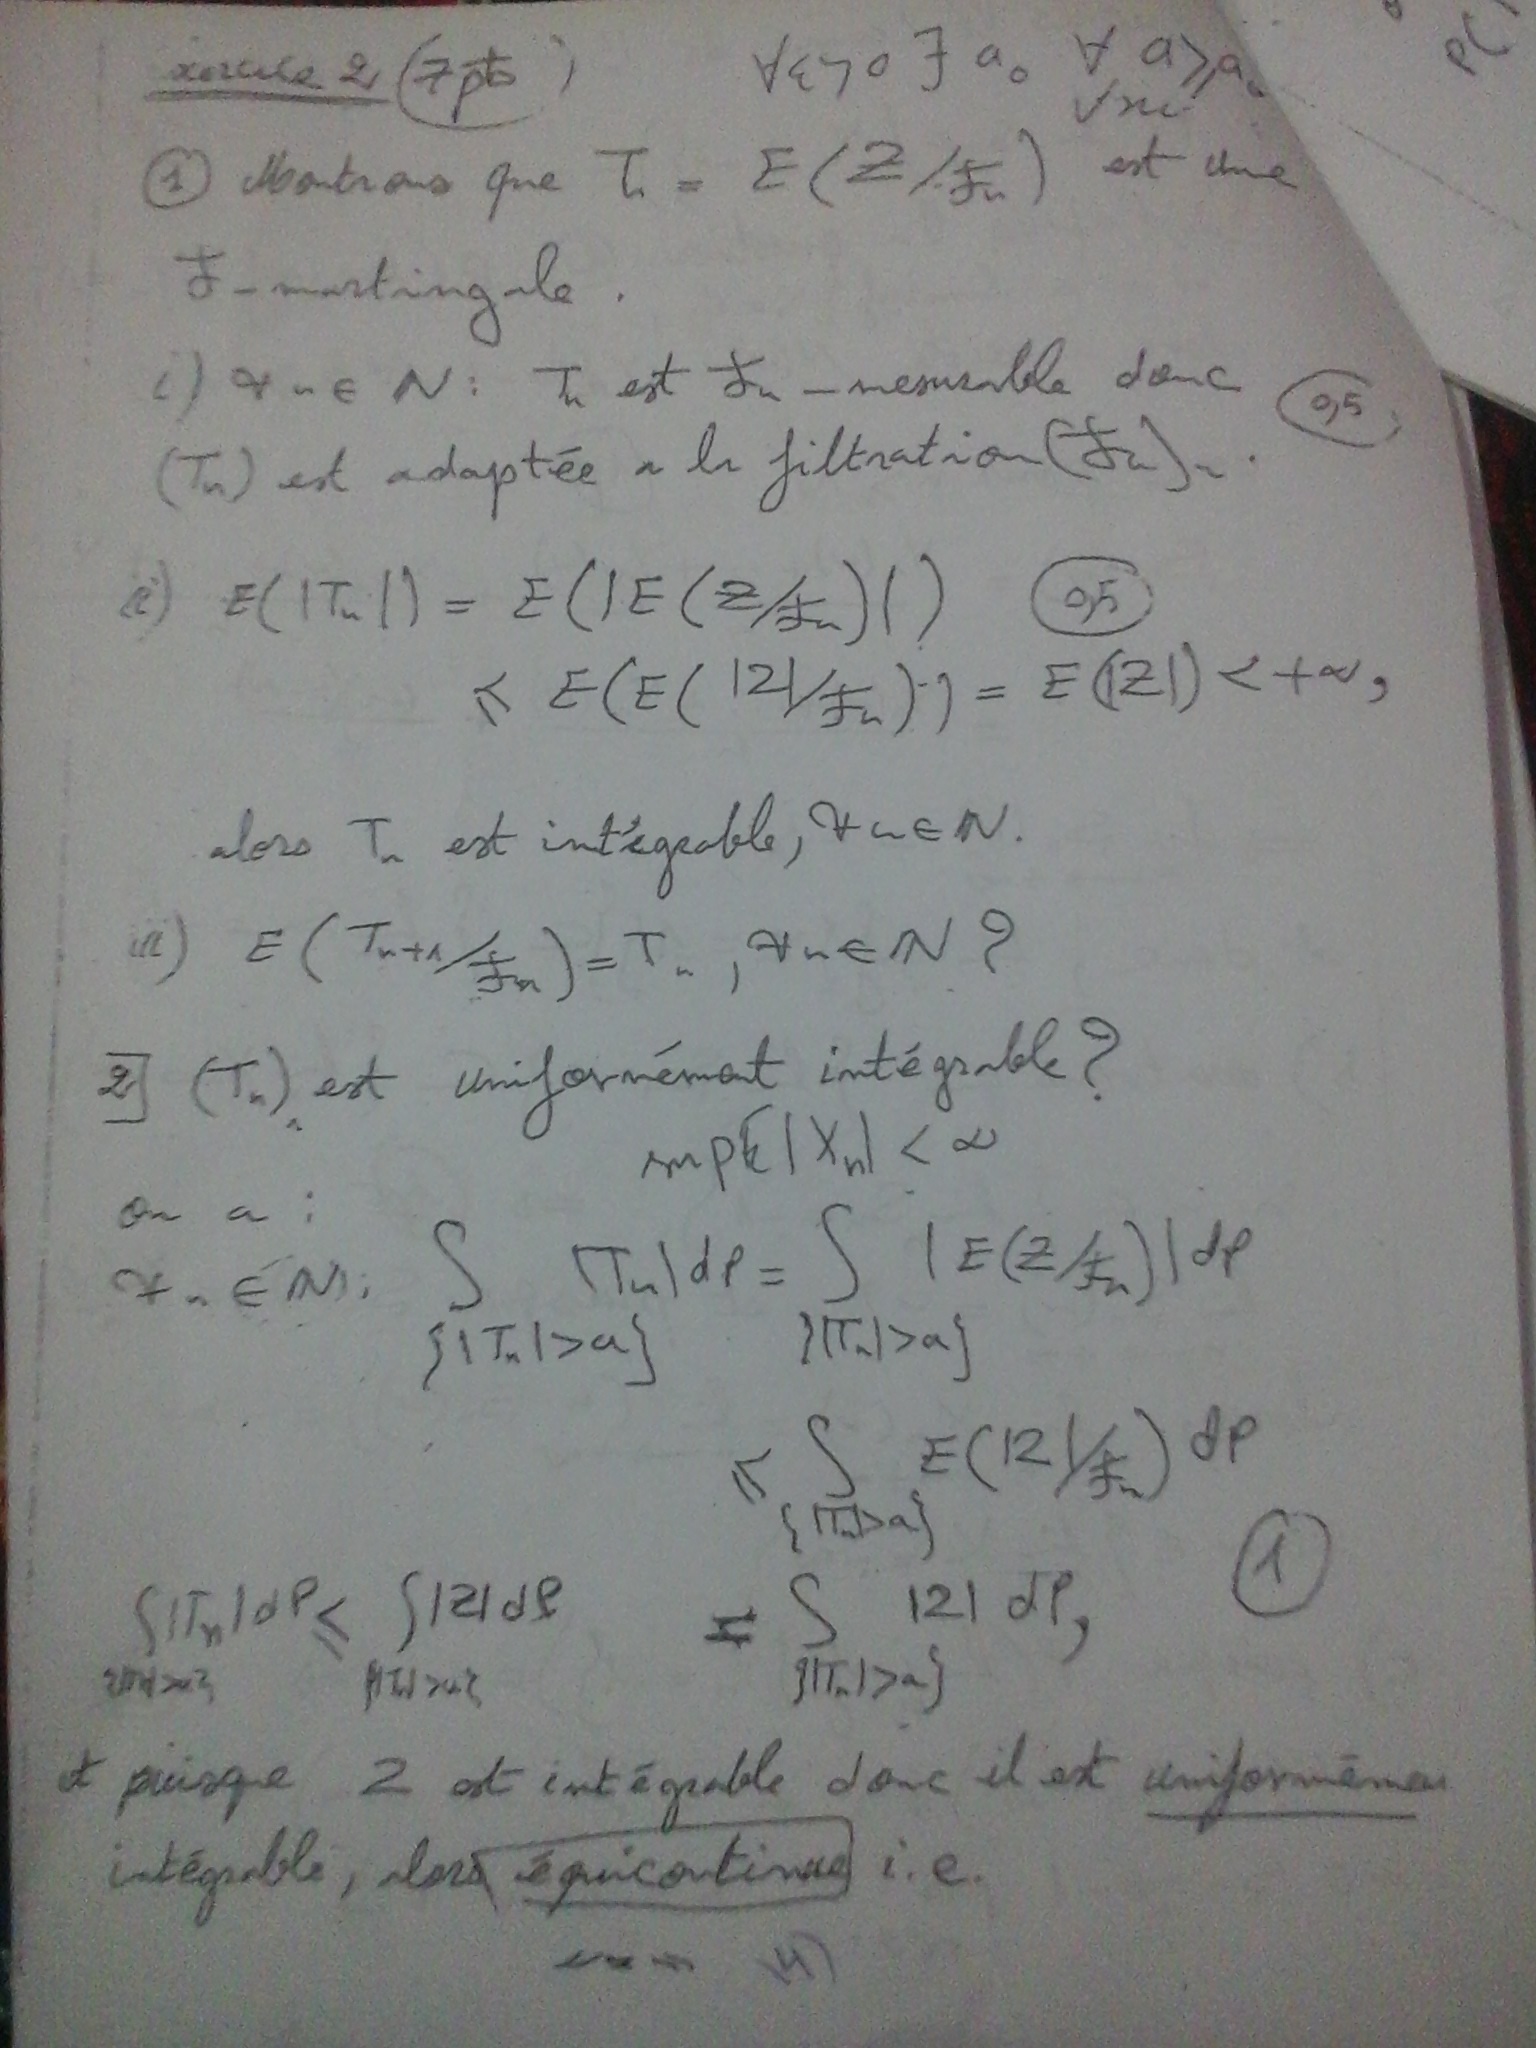 xercice 2 (7pts) ∀ε>0 ∃ a₀ ∀ a≥a₀
∀n
① Montrons que Tₙ = E(Z/ℱₙ) est une
ℱ-martingale.
i) ∀n∈ℕ: Tₙ est ℱₙ-mesurable donc 0,5
(Tₙ) est adaptée a la filtration (ℱₙ)ₙ.
ii) E(|Tₙ|) = E(|E(Z/ℱₙ)|) 0,5
≤ E(E(|Z|/ℱₙ)) = E(|Z|) < +∞,
alors Tₙ est intégrable, ∀n∈ℕ.
iii) E(Tₙ₊₁/ℱₙ) = Tₙ, ∀n∈ℕ ?
2] (Tₙ)ₙ est uniformément intégrable?
sup E|Xₙ| < ∞
on a :
∀n∈ℕ: ∫_{|Tₙ|>a} |Tₙ|dP = ∫_{|Tₙ|>a} |E(Z/ℱₙ)|dP
≤ ∫_{|Tₙ|>a} E(|Z|/ℱₙ) dP
∫|Tₙ|dP ≤ ∫|Z|dP = ∫_{|Tₙ|>a} |Z| dP, 1
et puisque Z est intégrable donc il est uniformémen
intégrable, alors équicontinue i.e.